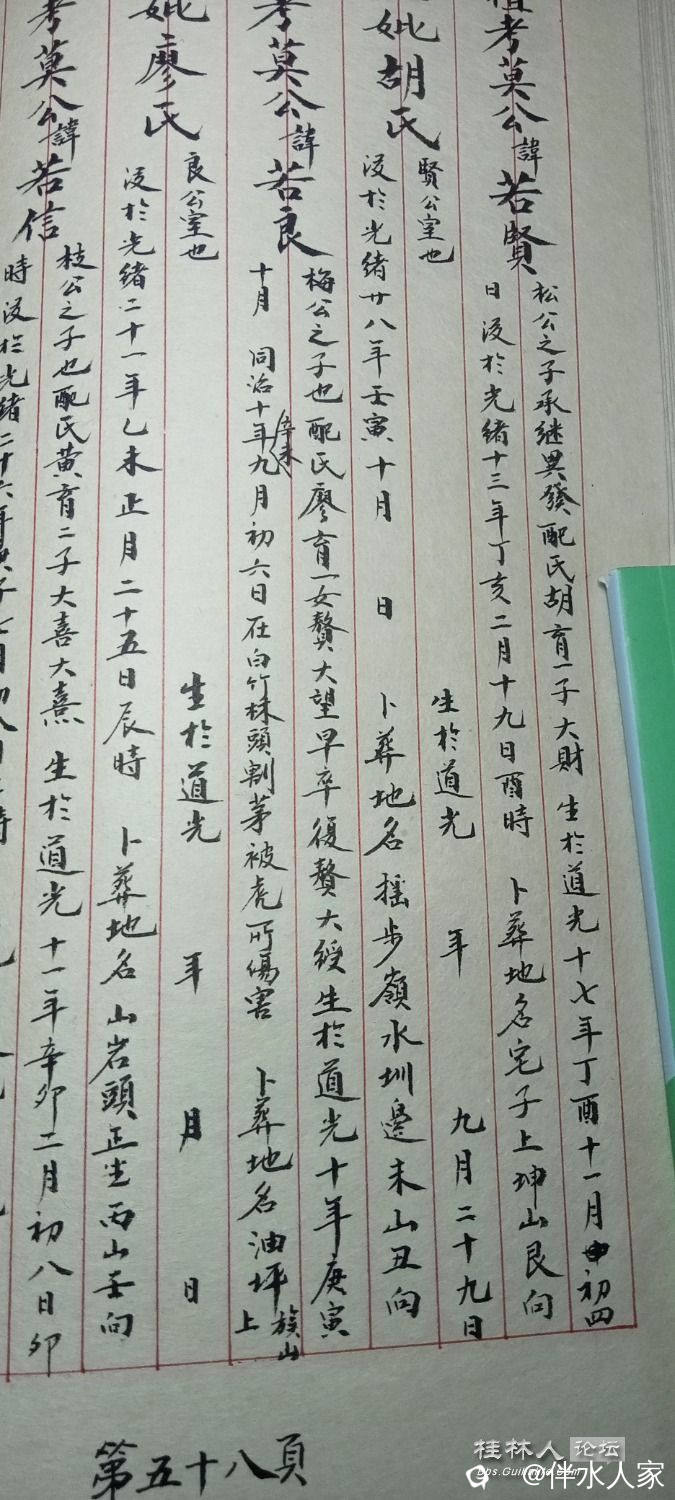 祖考莫公諱若賢
松公之子承繼異發配氏胡育一子大財 生於道光十七年丁酉十一月初四
日 沒於光緒十三年丁亥二月十九日酉時 卜葬地名宅子上坤山艮向
妣胡氏
賢公室也 生於道光 年 九月二十九日
沒於光緒廿八年壬寅十月 日 卜葬地名摇步嶺水圳邊未山丑向
考莫公諱若良
梅公之子也配氏廖育一女贅大望早卒復贅大綬生於道光十年庚寅
十月 同治十年辛未九月初六日在白竹林頭割茅被虎所傷害 卜葬地名油坪上 山
妣廖氏
良公室也 生於道光 年 月 日
沒於光緒二十一年乙未正月二十五日辰時 卜葬地名山岩頭正坐丙山壬向
考莫公諱若信
枝公之子也配氏黄育二子大喜大熹 生於道光十一年辛卯二月初八日卯
時沒於光緒二十六年庚子七月初八日
第五十八頁
桂林人论坛
bbs.Guilinlife.com
@伴水人家